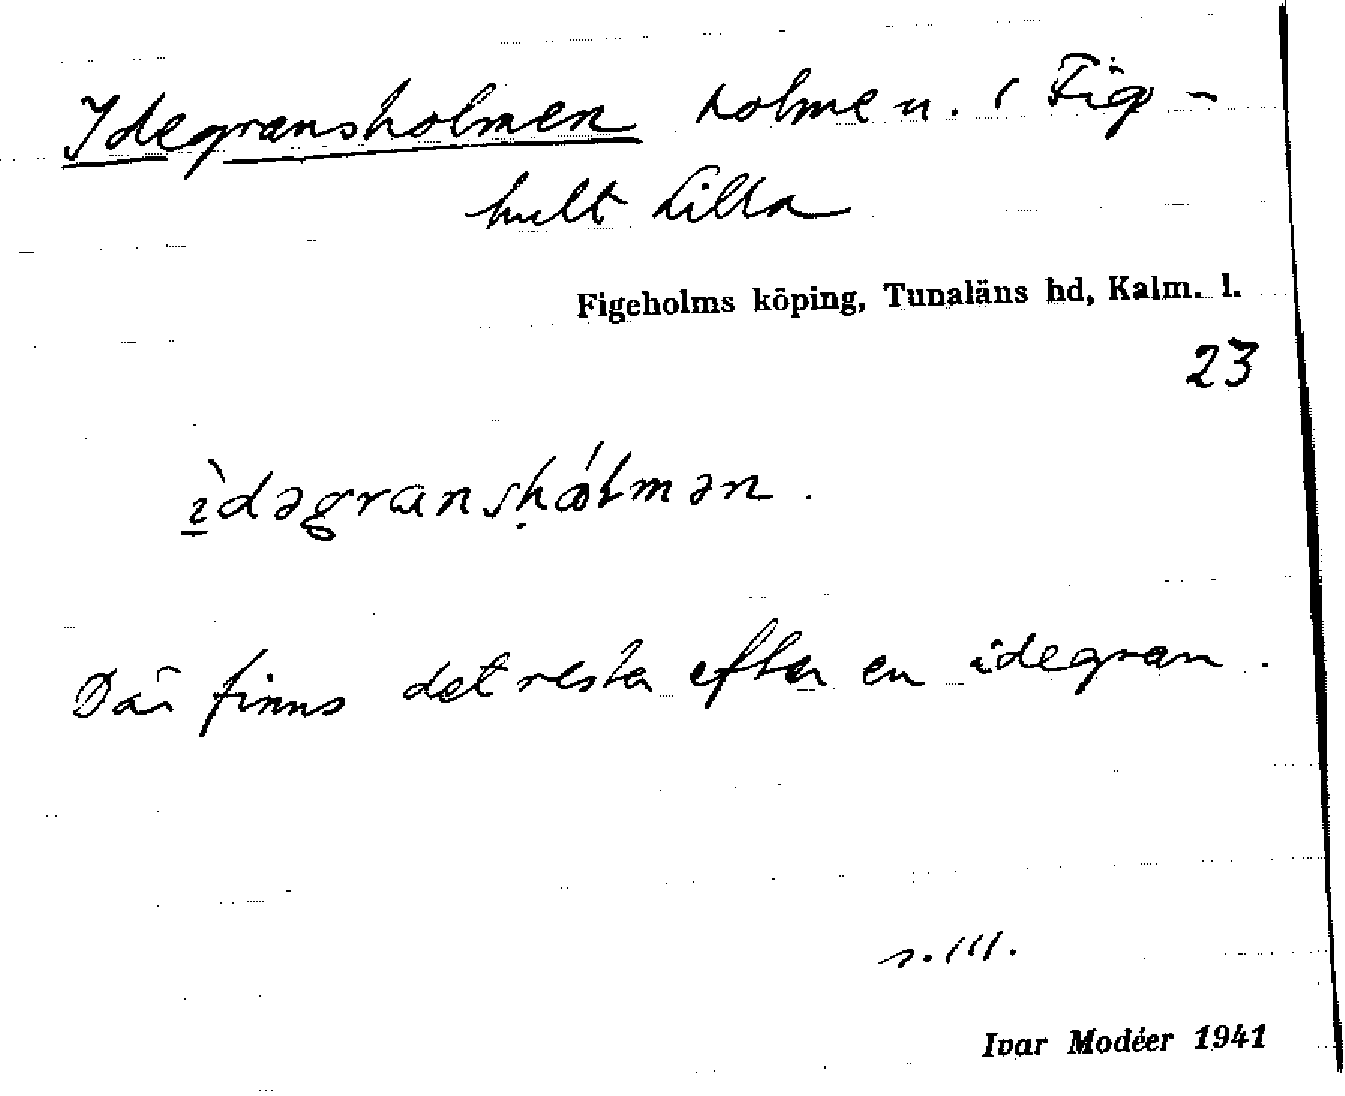 Idegransholmen holme n. i Fig-
hult Lilla
Figeholms köping, Tunaläns hd, Kalm. l.
23
ìdəgranshólmən.
Där finns det rester efter en idegran.
s. 111.
Ivar Modéer 1941